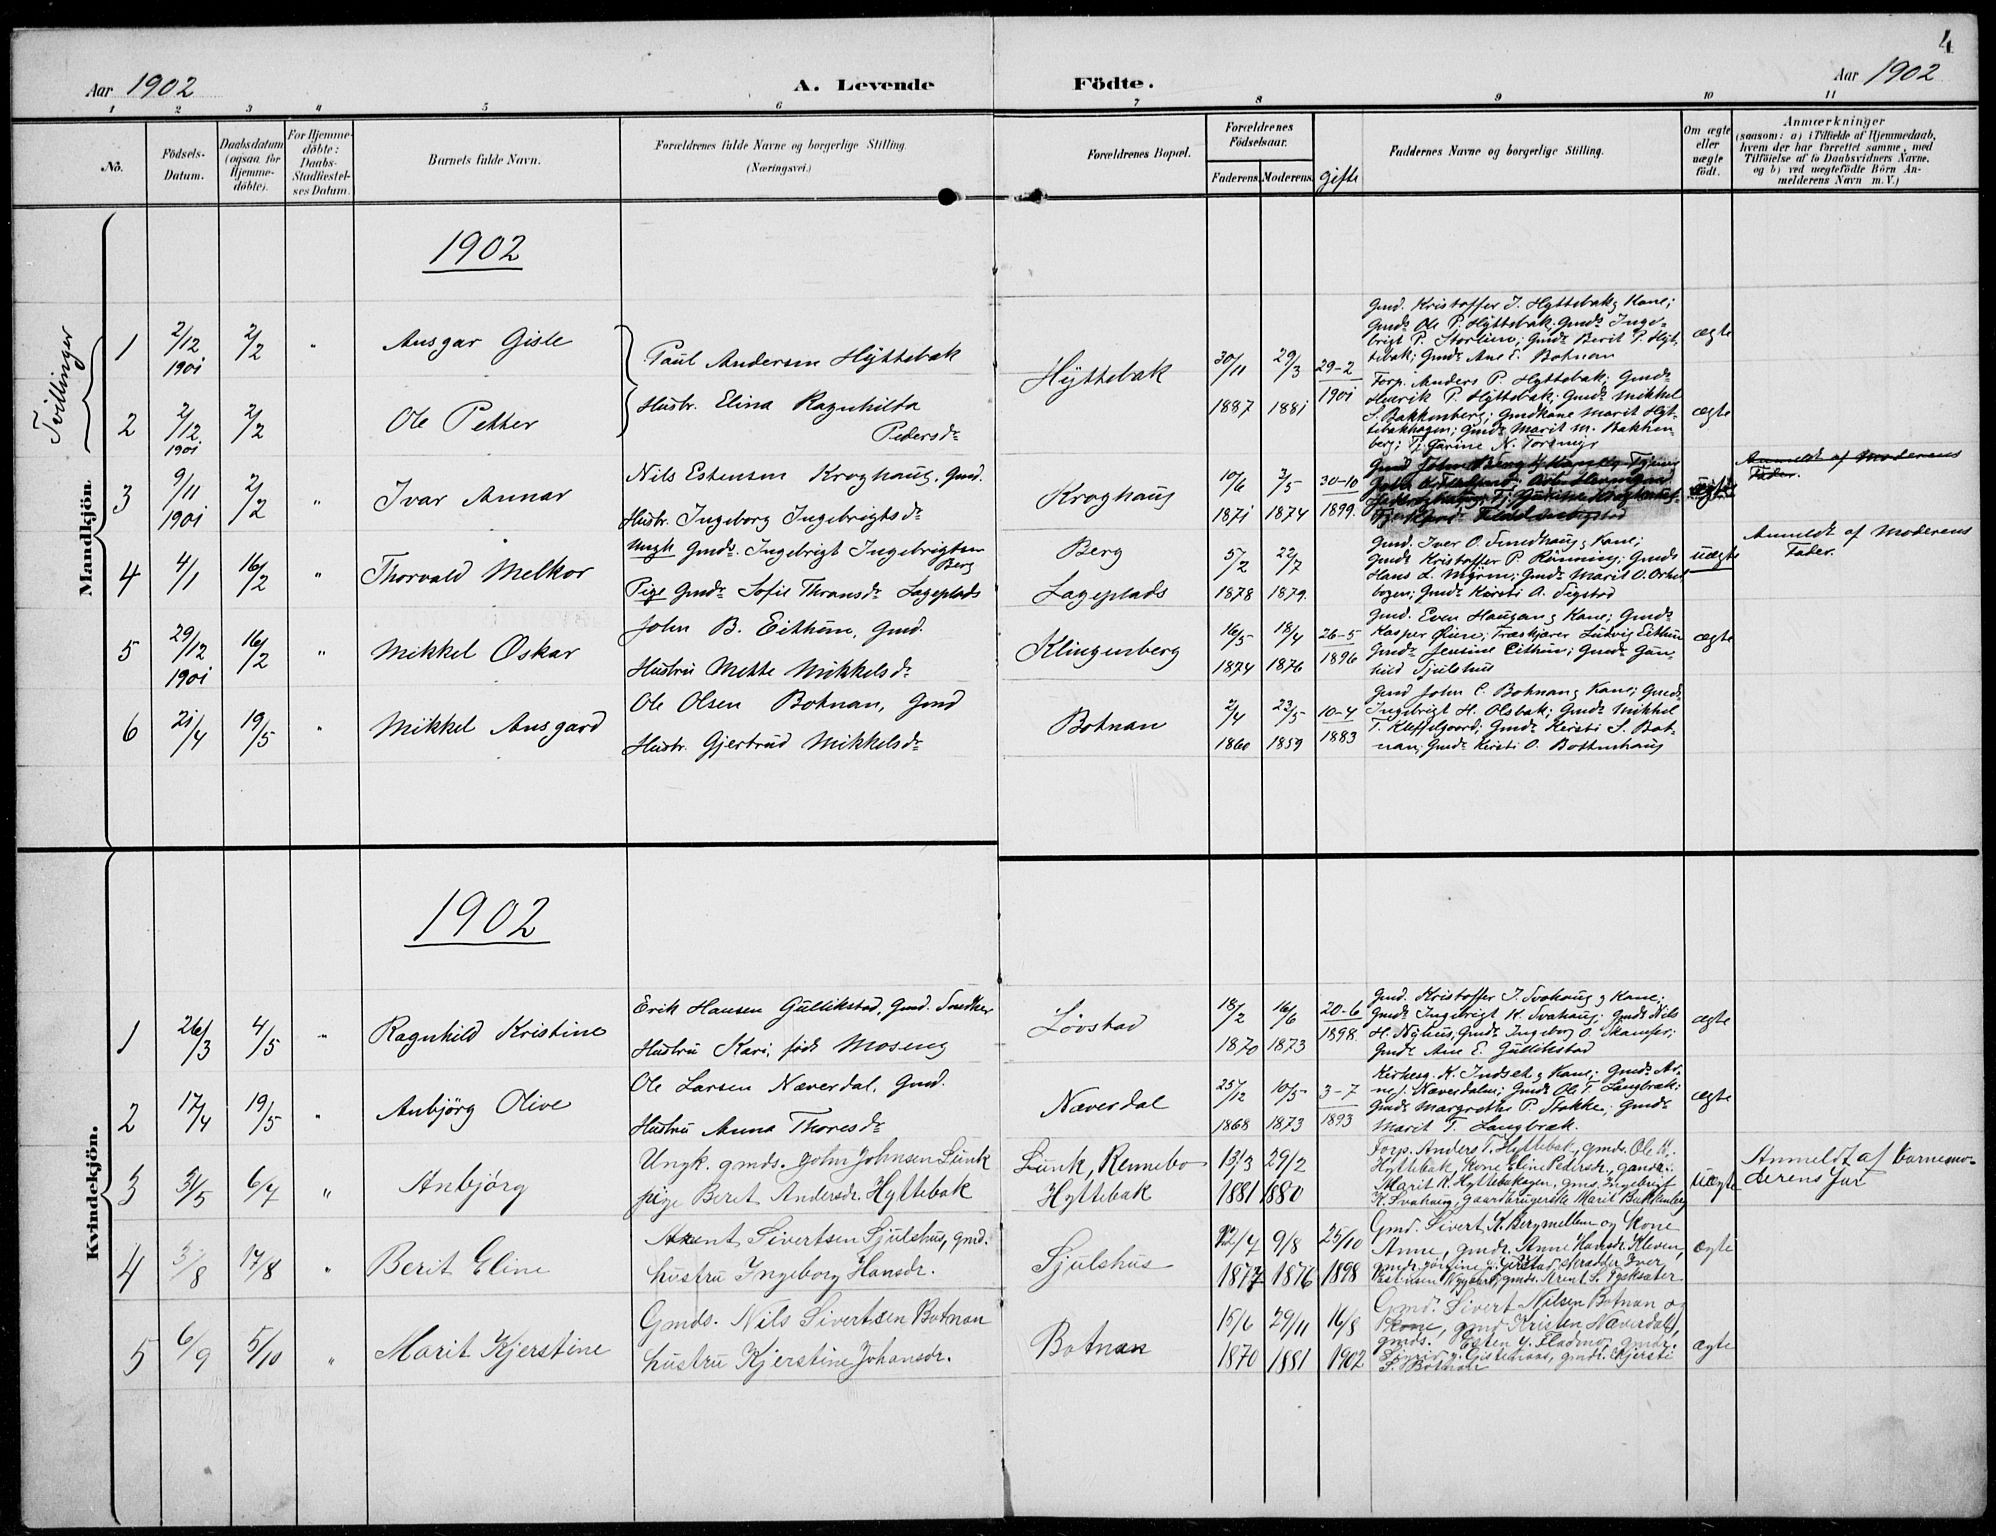 4
Aar 1902
A. Levende
Födte.
Aar 1902
1 2 3 4 5 6 7 8 9 10 11
No.
Födsels-
Datum.
Daabsdatum
(ogsaa for
Hjemme-
döbte).
For Hjemme-
döbte:
Daabs-
Stadfæstel-
ses Datum.
Barnets fulde Navn.
Forældrenes fulde Navne og borgerlige Stilling.
(Næringsvei.)
Forældrenes Bopæl.
Forældrenes
Födselsaar.
Faderens.
Moderens.
gifte
Faddernes Navne og borgerlige Stilling.
Om ægte
eller
uægte
födt.
Anmærkninger
(saasom: a) i Tilfælde af Hjemmedaab,
hvem der har forrettet samme, med
Tilföielse af to Daabsvidners Navne.
og b) ved uægtefödte Börn An-
melderens Navn m. V.)
Mandkjön.
Tvillinger
1902
1
2/12
1901
2/2
"
Ansgar Gisle
Paul Andersen Hyttebak
Hyttebak
30/11
1887
29/3
1881
29-2
1901
Gmd. Kristoffer J. Hyttebak & Kone;
Gmds Ole P. Hyttebak; Gmds Inge-
brigt P. Storlien; Gmdr Berit P. Hyt-
tebak; Gmdr Ane E. Botnan
ægte
2
2/12
1901
2/2
Ole Petter
Hustr. Elina Ragnhilta
Pedersdr
Forp. Anders P. Hyttebak; Gmds
Henrik P. Hyttebak; Gmds Mikkel
S. Bakkenberg; Gmdkone Marit Hyt-
tebakhagen; Gmdr Marit M. Bakken-
berg;
ægte
3
9/11
1901
2/2
"
Ivar Annar
Nils Estensen Kroghaug, Gmd.
Hustr. Ingeborg Ingebrigtsdr
Kroghaug
10/6
1871
3/5
1874
30-10
1899.
Anmeldt af Moderens
Fader.
4
4/1
16/2
"
Thorvald Melkor
Ungk Gmds. Ingebrigt Ingebrigtsen
Berg
Pige Gmdr Sofie Thronsdr Lageplads
Berg
Lageplads
5/2
1878
22/7
1879.
Gmd. Iver O. Sundhaug & Kone;
Gmds Kristoffer P. Rönning; Gmds
Hans L. Myrmo; Gmdr Marit O. Orkel-
bogen; Gmdr Kirsti A. Sigstad
uægte
Anmeldt af Moderens
Fader.
5
29/12
1901
16/2
"
Mikkel Oskar
John B. Eithun, Gmd.
Hustru Mette Mikkelsdr
Klingenberg
16/5
1874
18/4
1876
26-5
1896
Gmd. Even Haugan & Kone; Gmds
Kasper Öien; Træskjærer Ludvig Eithun
Gmdr Jensine Eithun; Gmdr Gun-
hild Sjulshus
ægte
6
21/4
19/5
"
Mikkel Ansgard
Ole Olsen Botnan, Gmd
Hustr. Gjertrud Mikkelsdr
Botnan
2/4
1860
23/5
1859
10-4
1883
Gmd John E. Botnan & Kone; Gmds
Ingebrigt H. Olsbak; Gmds Mikkel
T. Kleffelgaard; Gmdr Kirsti S. Bot-
nan; Gmdr Kirsti O. Bottenhaug
Kvindekjön.
1902
1
26/3
4/5
"
Ragnhild Kristine
Erik Hansen Gullikstad, Gmd. Snedker
Hustru Kari, födt Moseng
Lövstad
18/2
1870
16/6
1873
20-6
1898.
Gmd. Kristoffer J. Svahaug & Kone;
Gmds Ingebrigt K. Svahaug; Gmds Nils
H. Nyhus; Gmdr Ingeborg O. Skamfer;
Gmdr Ane E. Gullikstad
ægte
2
17/4
19/5
"
Anbjörg Olive
Ole Larsen Næverdal, Gmd.
Hustru Anna Thoresdr
Næverdal
25/12
1868
10/5
1873
3-7
1893
Kirkesg. K. Indset & Kone; Gmds Ar-
ne J. Næverdalen; Gmds Ole T. Langbræk;
Gmdr Margrethe P. Stokke; Gmdr
Marit T. Langbræk.
ægte
3
31/5
6/7
"
Anbjörg
Ungk. gmds. John Johnsen Lunk
pige Berit Andersdr. Hyttebak
Lunk, Rennebo
Hyttebak
13/3
1881
29/2
1880
Forp. Anders P. Hyttebak, gmds. Ole K.
Hyttebak, kone Eline Pedersdr, gmdr.
Marit K. Hyttebakhagen, gmds. Ingebrigt
K. Svahaug, gaardbrugerske Marit Bakkenberg
uægte
Anmeldt af barnemo-
derens far
4
3/8
17/8
"
Berit Eline
Arent Sivertsen Sjulshus, gmd.
hustru Ingeborg Hansdr.
Sjulshus
12/7
1877
9/8
1876
25/10
1898
Gmd. Sivert K. Bergmellem og Kone
Anne, gmdr. Anne Hansdr. Kleven,
ægte
5
6/9
5/10
"
Marit Kjerstine
Gmds. Nils Sivertsen Botnan
hustru Kjerstine Johansdr.
Botnan
15/6
1870
29/11
1881
16/8
1902
Gmd. Sivert Nilsen Botnan og
Kone, gmd Kristen Næverdal,
gmds. Esten J. Fladmo, gmdr.
S. Botnan
ægte